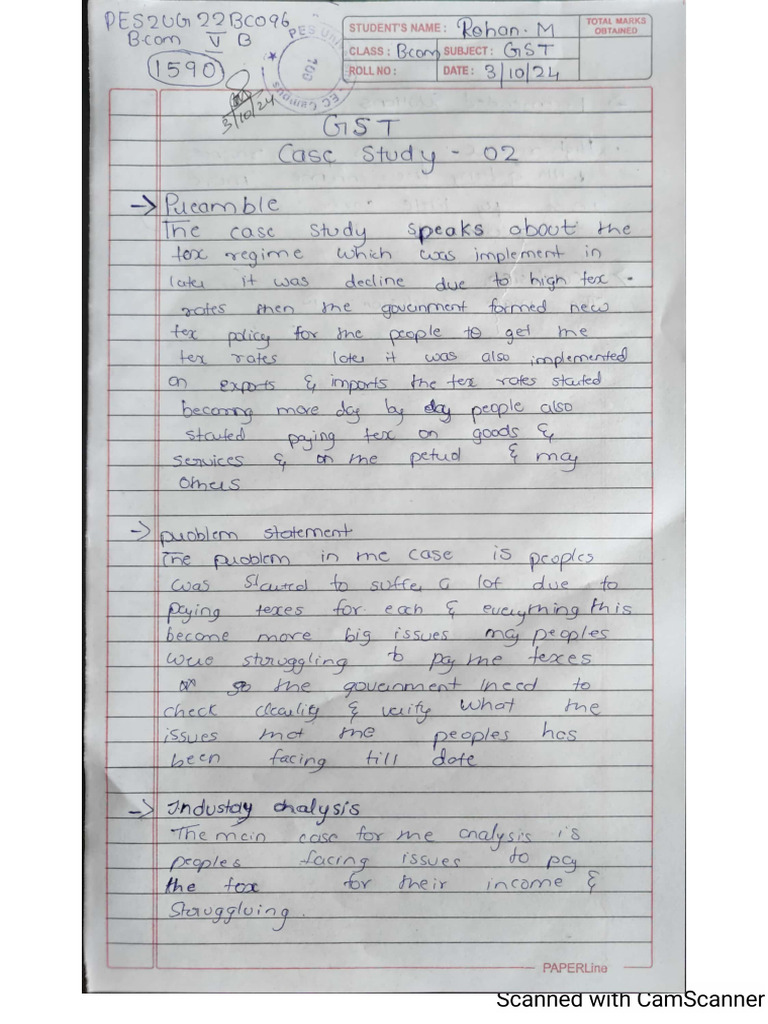 PES2UG22BC096
B.com V B
1590
3/10/24
PES UNI
100
EC Campus
STUDENT'S NAME : Rohan. M
CLASS : Bcom SUBJECT : GST
ROLL NO : DATE : 3/10/24
TOTAL MARKS OBTAINED
GST
Case Study - 02
→ Preamble
The case study speaks about the
tax regime which was implement in
later it was decline due to high tax
rates then the government formed new
tax policy for the people to get the
tax rates later it was also implemented
on exports & imports the tax rates started
becoming more day by day people also
started paying tax on goods &
services & on the petrol & may
others
→ problem statement
The problem in the case is peoples
was started to suffer a lot due to
paying texes for each & everything this
become more big issues may peoples
were struggling to pay the texes
so the government need to
check clearlity & verify what the
issues that the peoples has
been facing till date
→ Industry analysis
The main case for the analysis is
peoples facing issues to pay
the tax for their income &
struggluing.
PAPERLine
Scanned with CamScanner